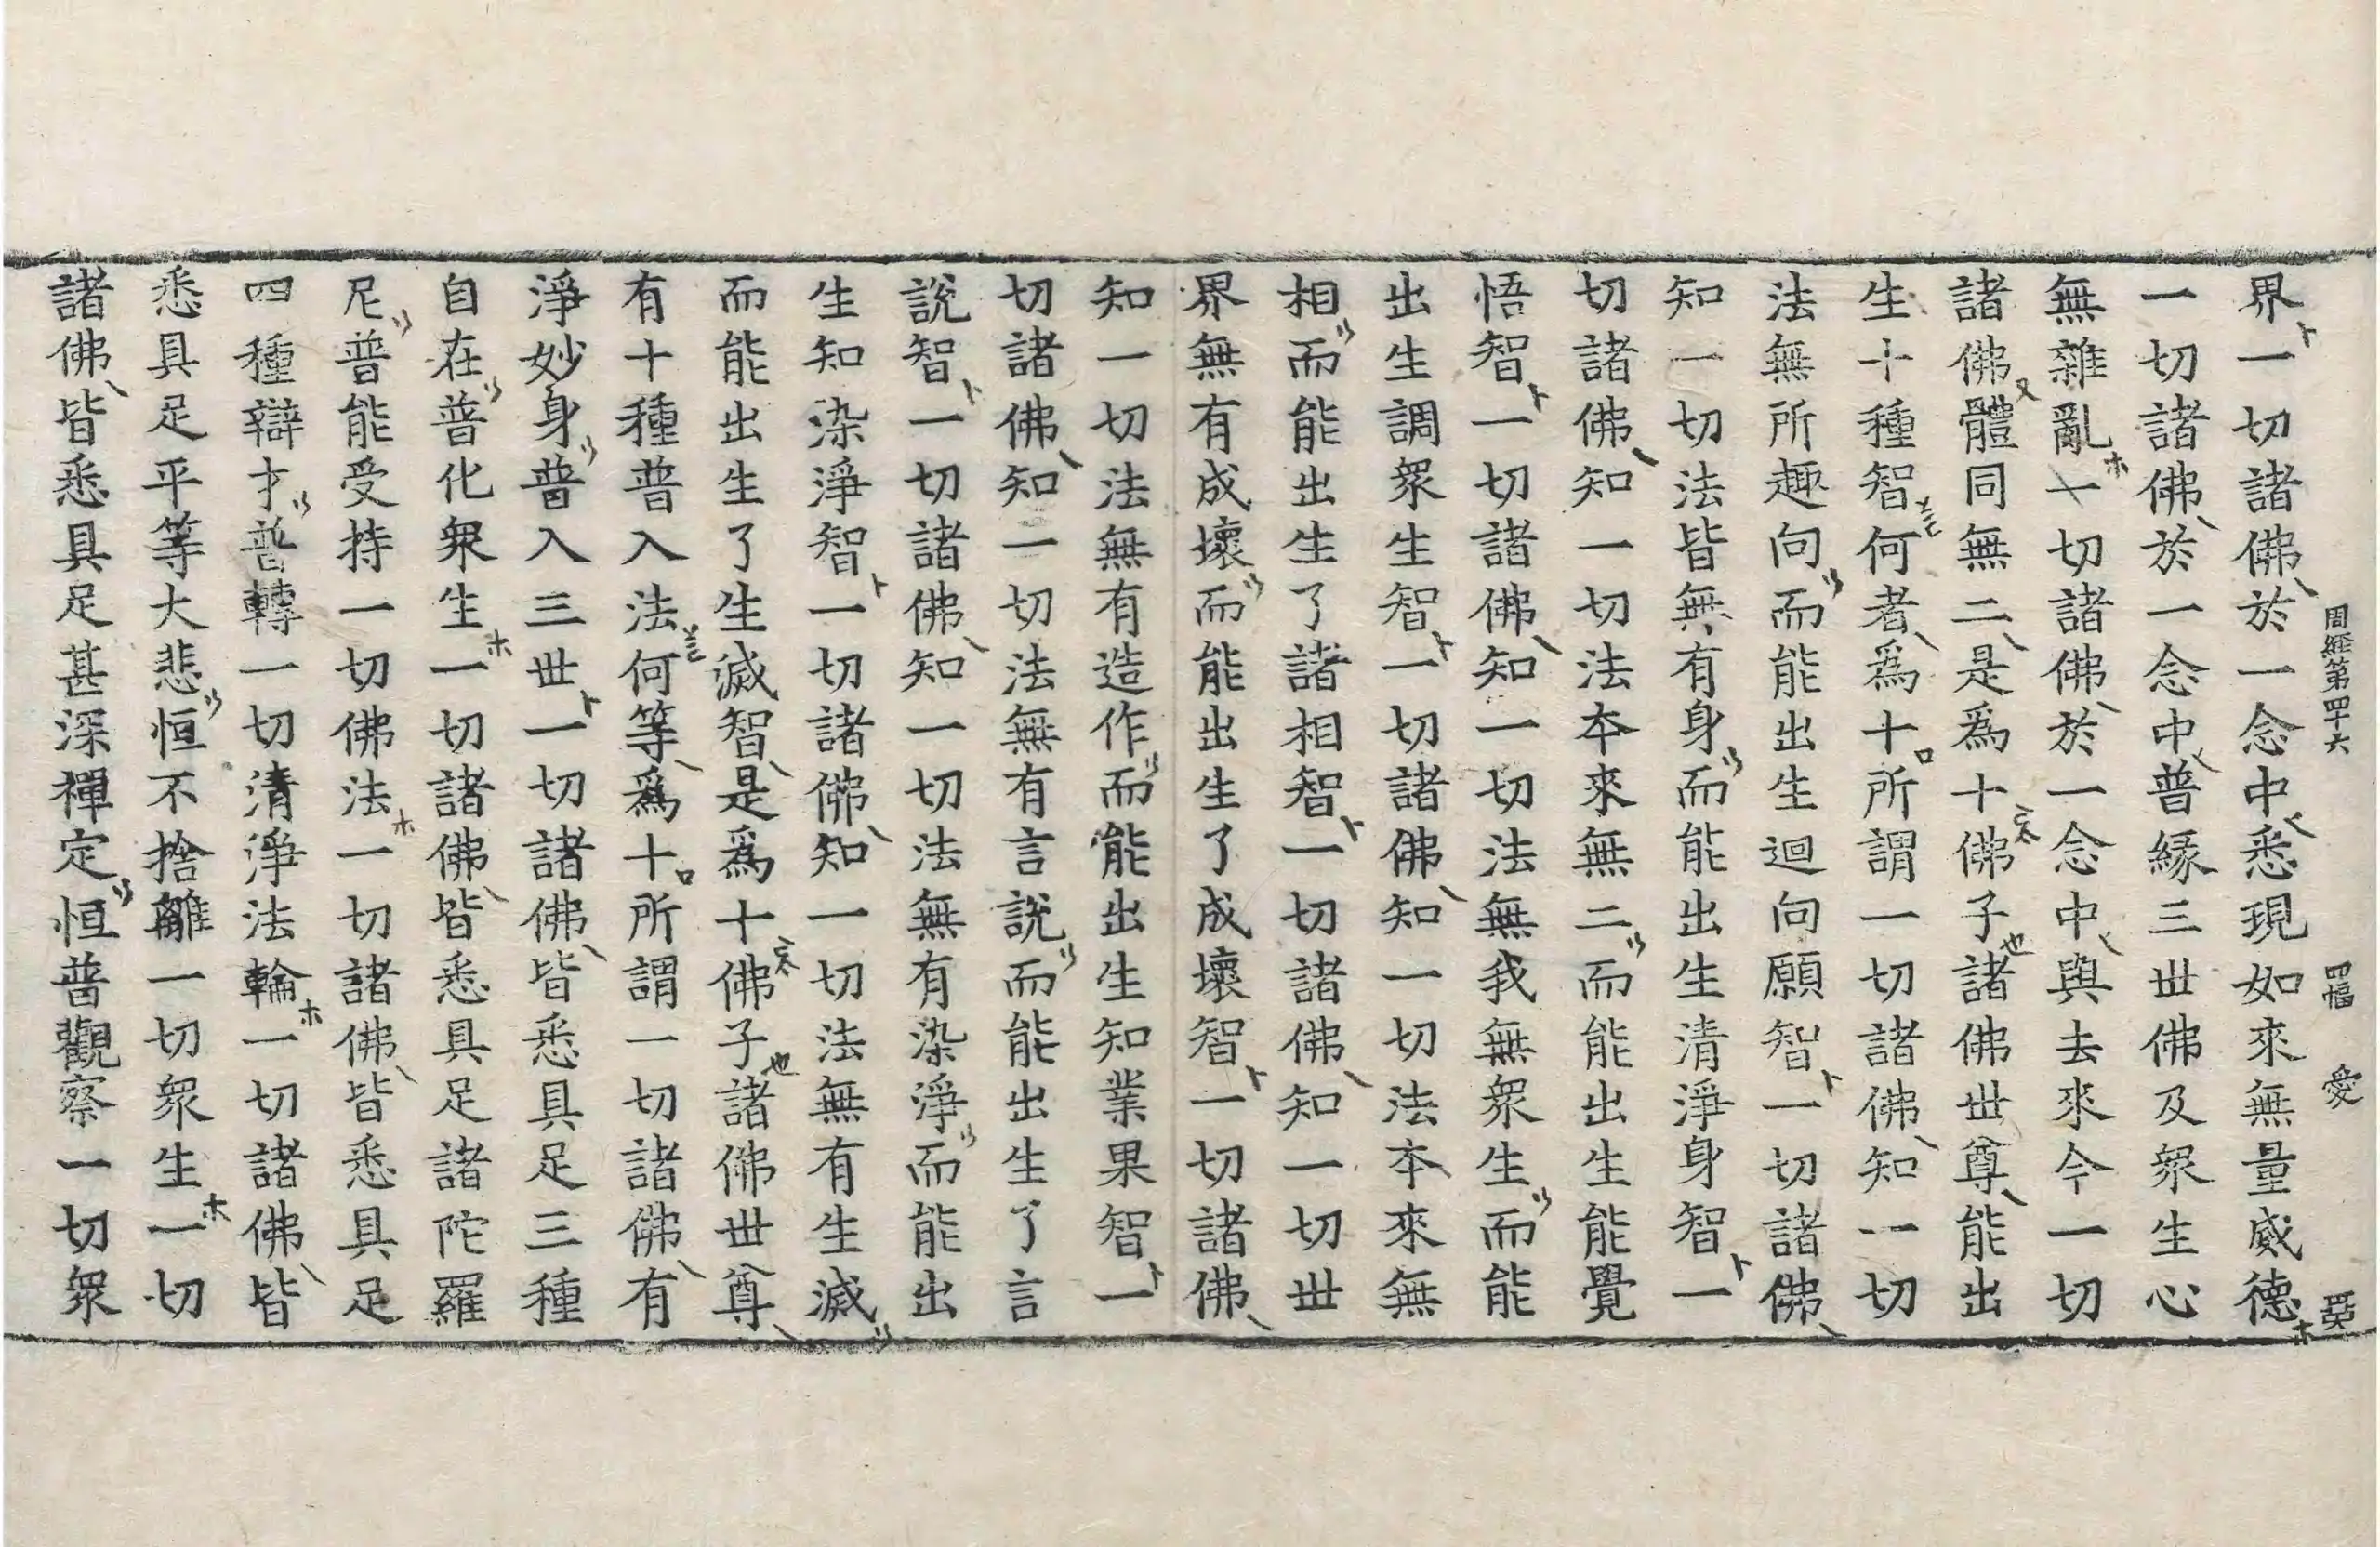 界一切諸佛於一念中悉現如來無量威德
一切諸佛於一念中普緣三世佛及衆生心
無雜亂一切諸佛於一念中與去來今一切
諸佛體同無二是爲十佛子諸佛世尊能出
生十種智何者爲十所謂一切諸佛知一切
法無所趣向而能出生迴向願智一切諸佛
知一切法皆無有身而能出生清淨身智一
切諸佛知一切法本來無二而能出生能覺
悟智一切諸佛知一切法無我無衆生而能
出生調衆生智一切諸佛知一切法本來無
相而能出生了諸相智一切諸佛知一切世
界無有成壞而能出生了成壞智一切諸佛
知一切法無有造作而能出生知業果智一
切諸佛知一切法無有言說而能出生了言
說智一切諸佛知一切法無有染淨而能出
生知染淨智一切諸佛知一切法無有生滅
而能出生了生滅智是爲十佛子諸佛世尊
有十種普入法何等爲十所謂一切諸佛有
淨妙身普入三世一切諸佛皆悉具足三種
自在普化衆生一切諸佛皆悉具足諸陀羅
尼普能受持一切佛法一切諸佛皆悉具足
四種辯才普轉一切清淨法輪一切諸佛皆
悉具足平等大悲恒不捨離一切衆生一切
諸佛皆悉具足甚深禪定恒普觀察一切衆
周經第四十六 四幅 愛